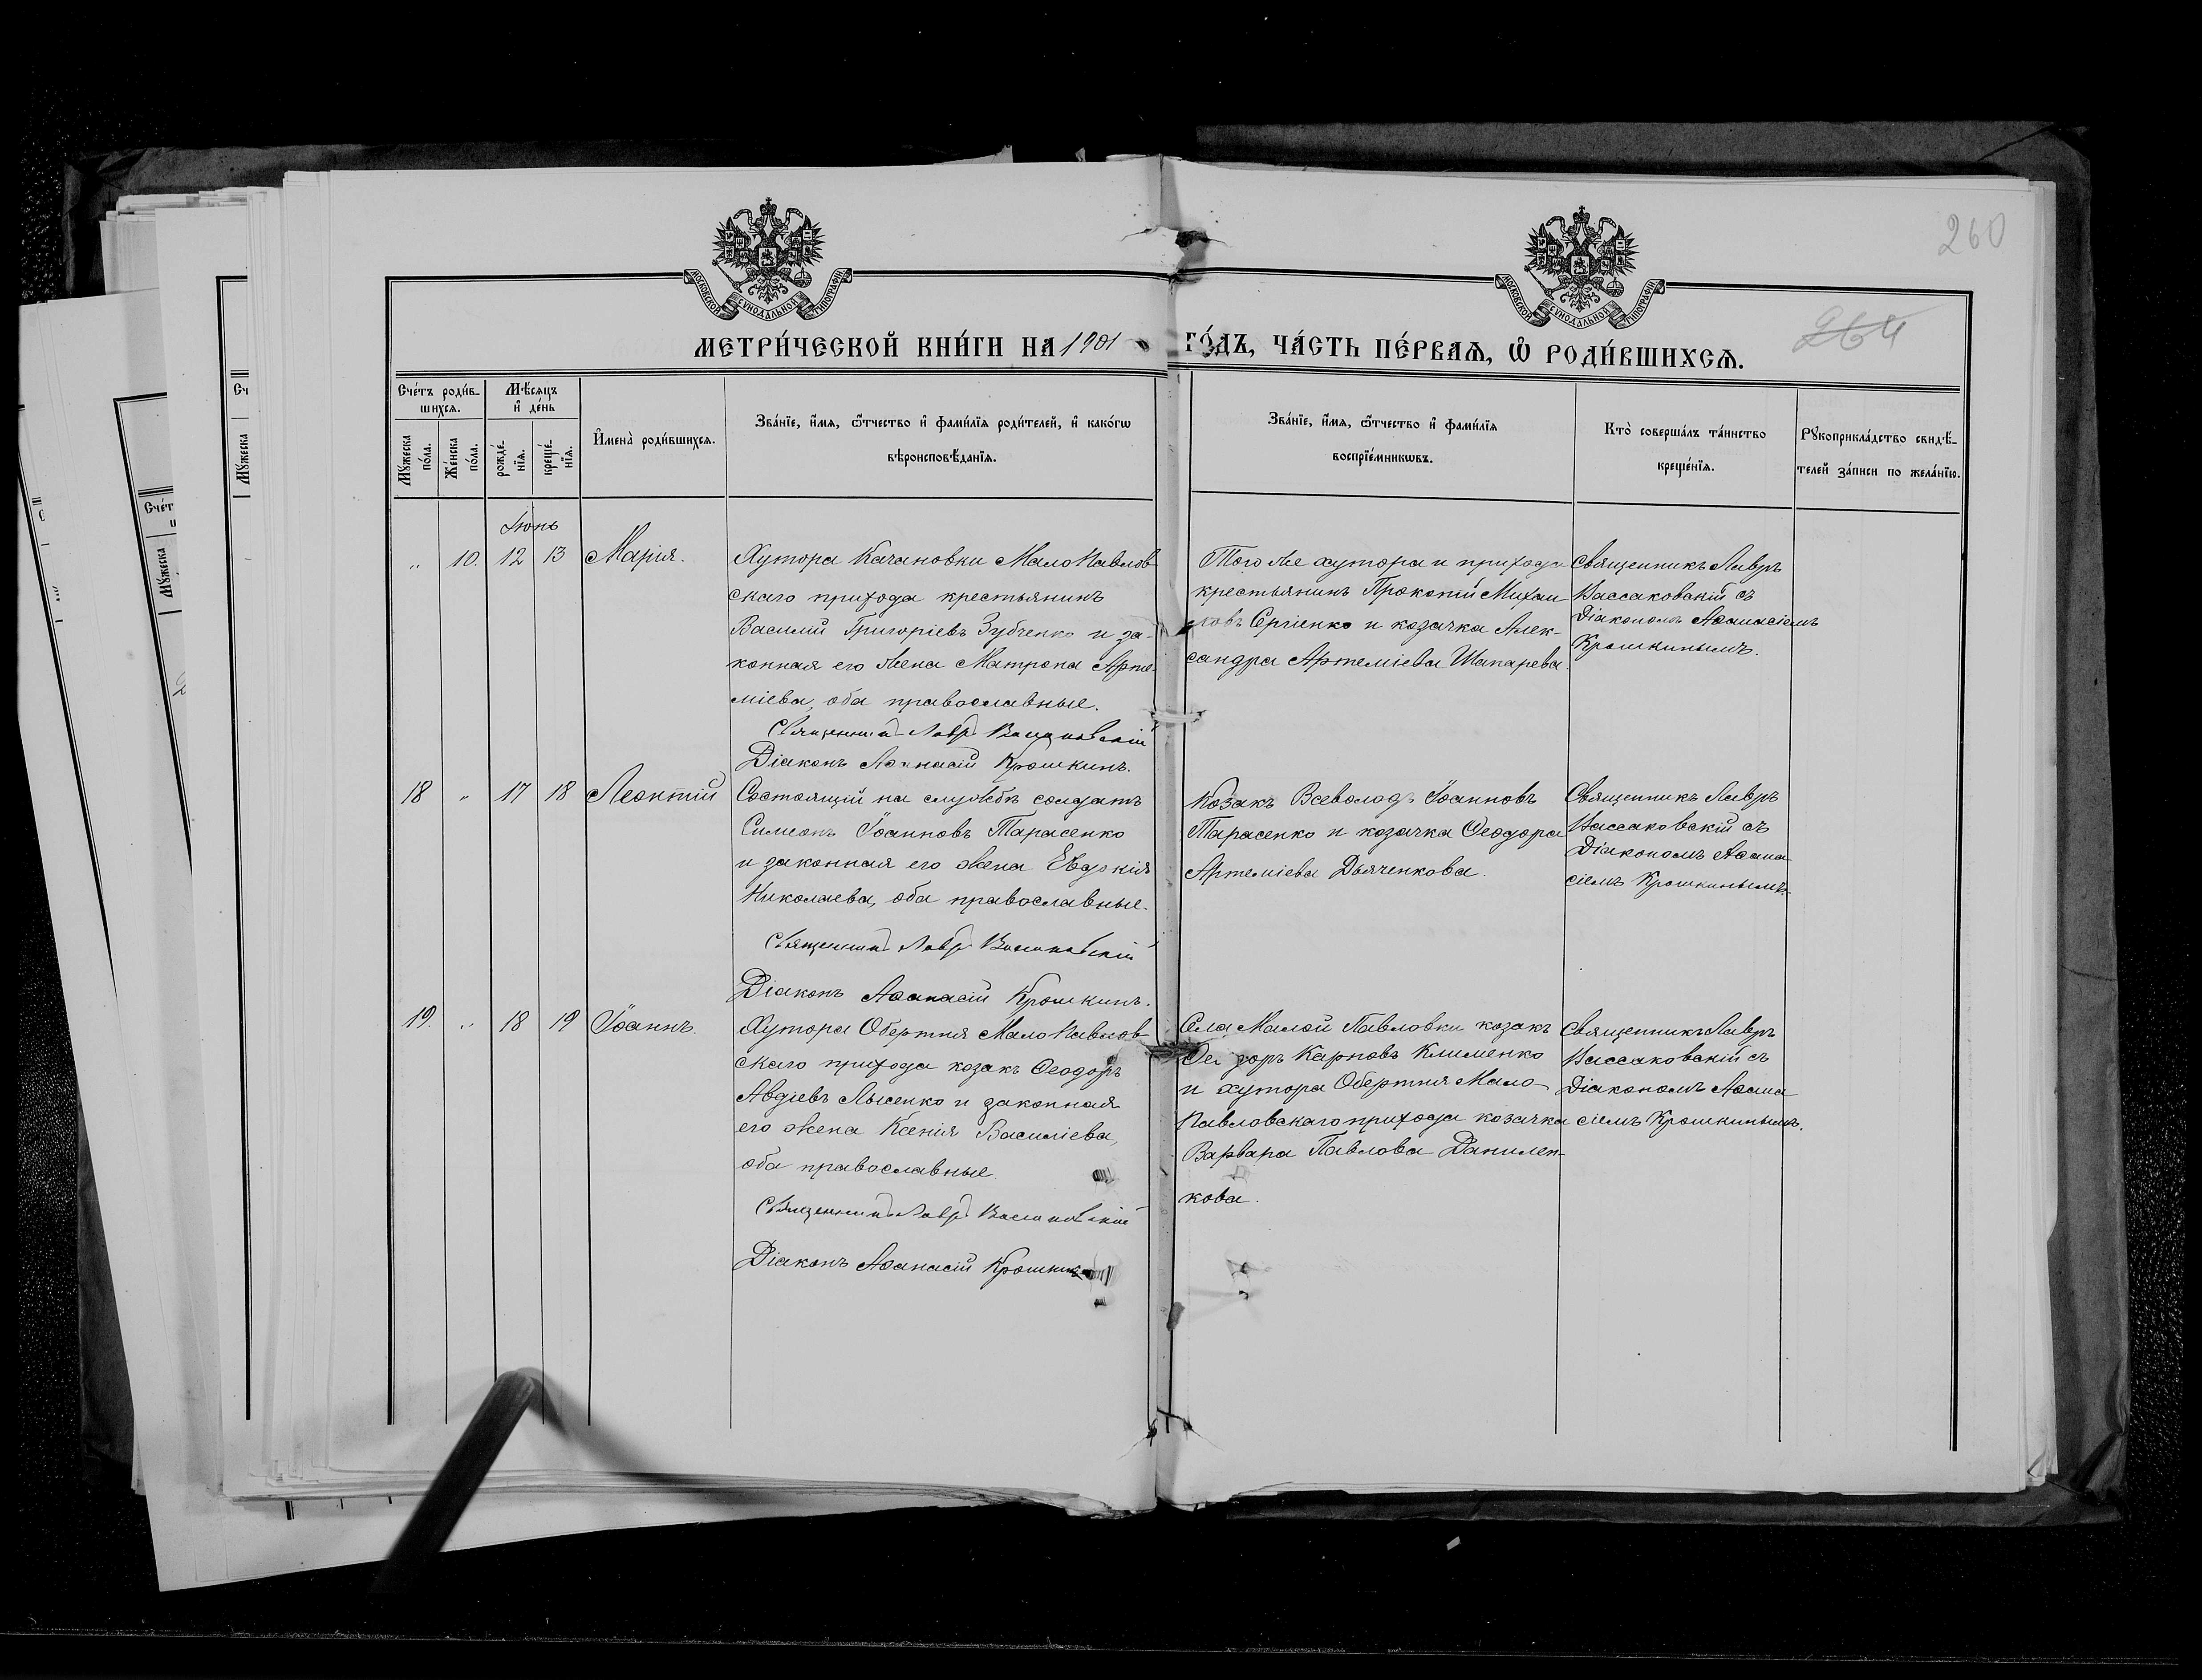 260
264
МОСКОВСКОЙ СѴНОДАЛЬНОЙ ТИПОГРАФІИ
МОСКОВСКОЙ СѴНОДАЛЬНОЙ ТИПОГРАФІИ
МЕТРИ́ЧЕСКОЙ КНИ́ГИ НА 1901 ГО́ДЪ, ЧА́СТЬ ПЕ́РВАѦ, Ѡ҆ РОДИ́ВШИХСѦ.
Сче́тъ роди́в-
шихсѧ.
Мꙋ́жеска по́ла.
Же́нска по́ла.
Мѣ́сѧцъ
и҆ де́нь
рожде́-
нїѧ.
креще́-
нїѧ.
И҆мена̀ роди́вшихсѧ.
Зва́нїе, и҆́мѧ, ѻ҆́тчество и҆ фами́лїѧ роди́телей, и҆ како́гѡ
вѣроисповѣ́данїѧ.
Зва́нїе, и҆́мѧ, ѻ҆́тчество и҆ фами́лїѧ
воспрїе́мникѡвъ.
Кто̀ соверша́лъ та́инство
креще́нїѧ.
Рꙋкоприкла́дство свидѣ́-
телей за́писи по жела́нїю.
Іюнь
„ 10. 12 13 Марія.
Хутора Качановки Мало Павлов-
скаго прихода крестьянинъ
Василій Григоріевъ Зубченко и за-
конная его жена Матрона Арте-
міева, оба православные.
Священникъ Лавръ Вассаковскій
Діаконъ Аѳанасій Крошкинъ.
Того же хутора и прихода
крестьянинъ Прокопій Михаи-
ловъ Сергіенко и козачка Алек-
сандра Артеміева Шапарева
Священникъ Лавръ
Вассаковскій съ
Діакономъ Аѳанасіемъ
Крошкинымъ.
18 „ 17 18 Леонтій
Состоящій на службѣ солдатъ
Симеонъ Іоанновъ Тарасенко
и законная его жена Евдокія
Николаева, оба православные.
Священникъ Лавръ Вассаковскій
Діаконъ Аѳанасій Крошкинъ.
Козакъ Всеволодъ Іоанновъ
Тарасенко и козачка Ѳеодора
Артеміева Дьяченкова.
Священникъ Лавръ
Вассаковскій съ
Діакономъ Аѳана-
сіемъ Крошкинымъ.
19. „ 18 19 Іоаннъ.
Хутора Обертня Мало Павлов-
скаго прихода козакъ Ѳеодоръ
Авдіевъ Лысенко и законная
его жена Ксенія Василіева,
оба православные.
Священникъ Лавръ Вассаковскій
Діаконъ Аѳанасій Крошкинъ
Села Малой Павловки козакъ
Ѳеодоръ Карповъ Клименко
и хутора Обертня Мало-
Павловскаго прихода козачка
Варвара Павлова Данилен-
кова.
Священникъ Лавръ
Вассаковскій съ
Діакономъ Аѳана-
сіемъ Крошкинымъ.
Сч
Мꙋжеска
Сче́т
Мꙋжеска